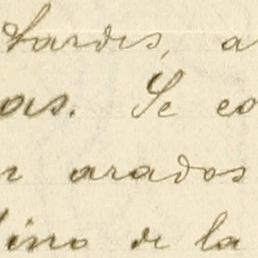 tardes, a
as. Se co
r arados
ino de la